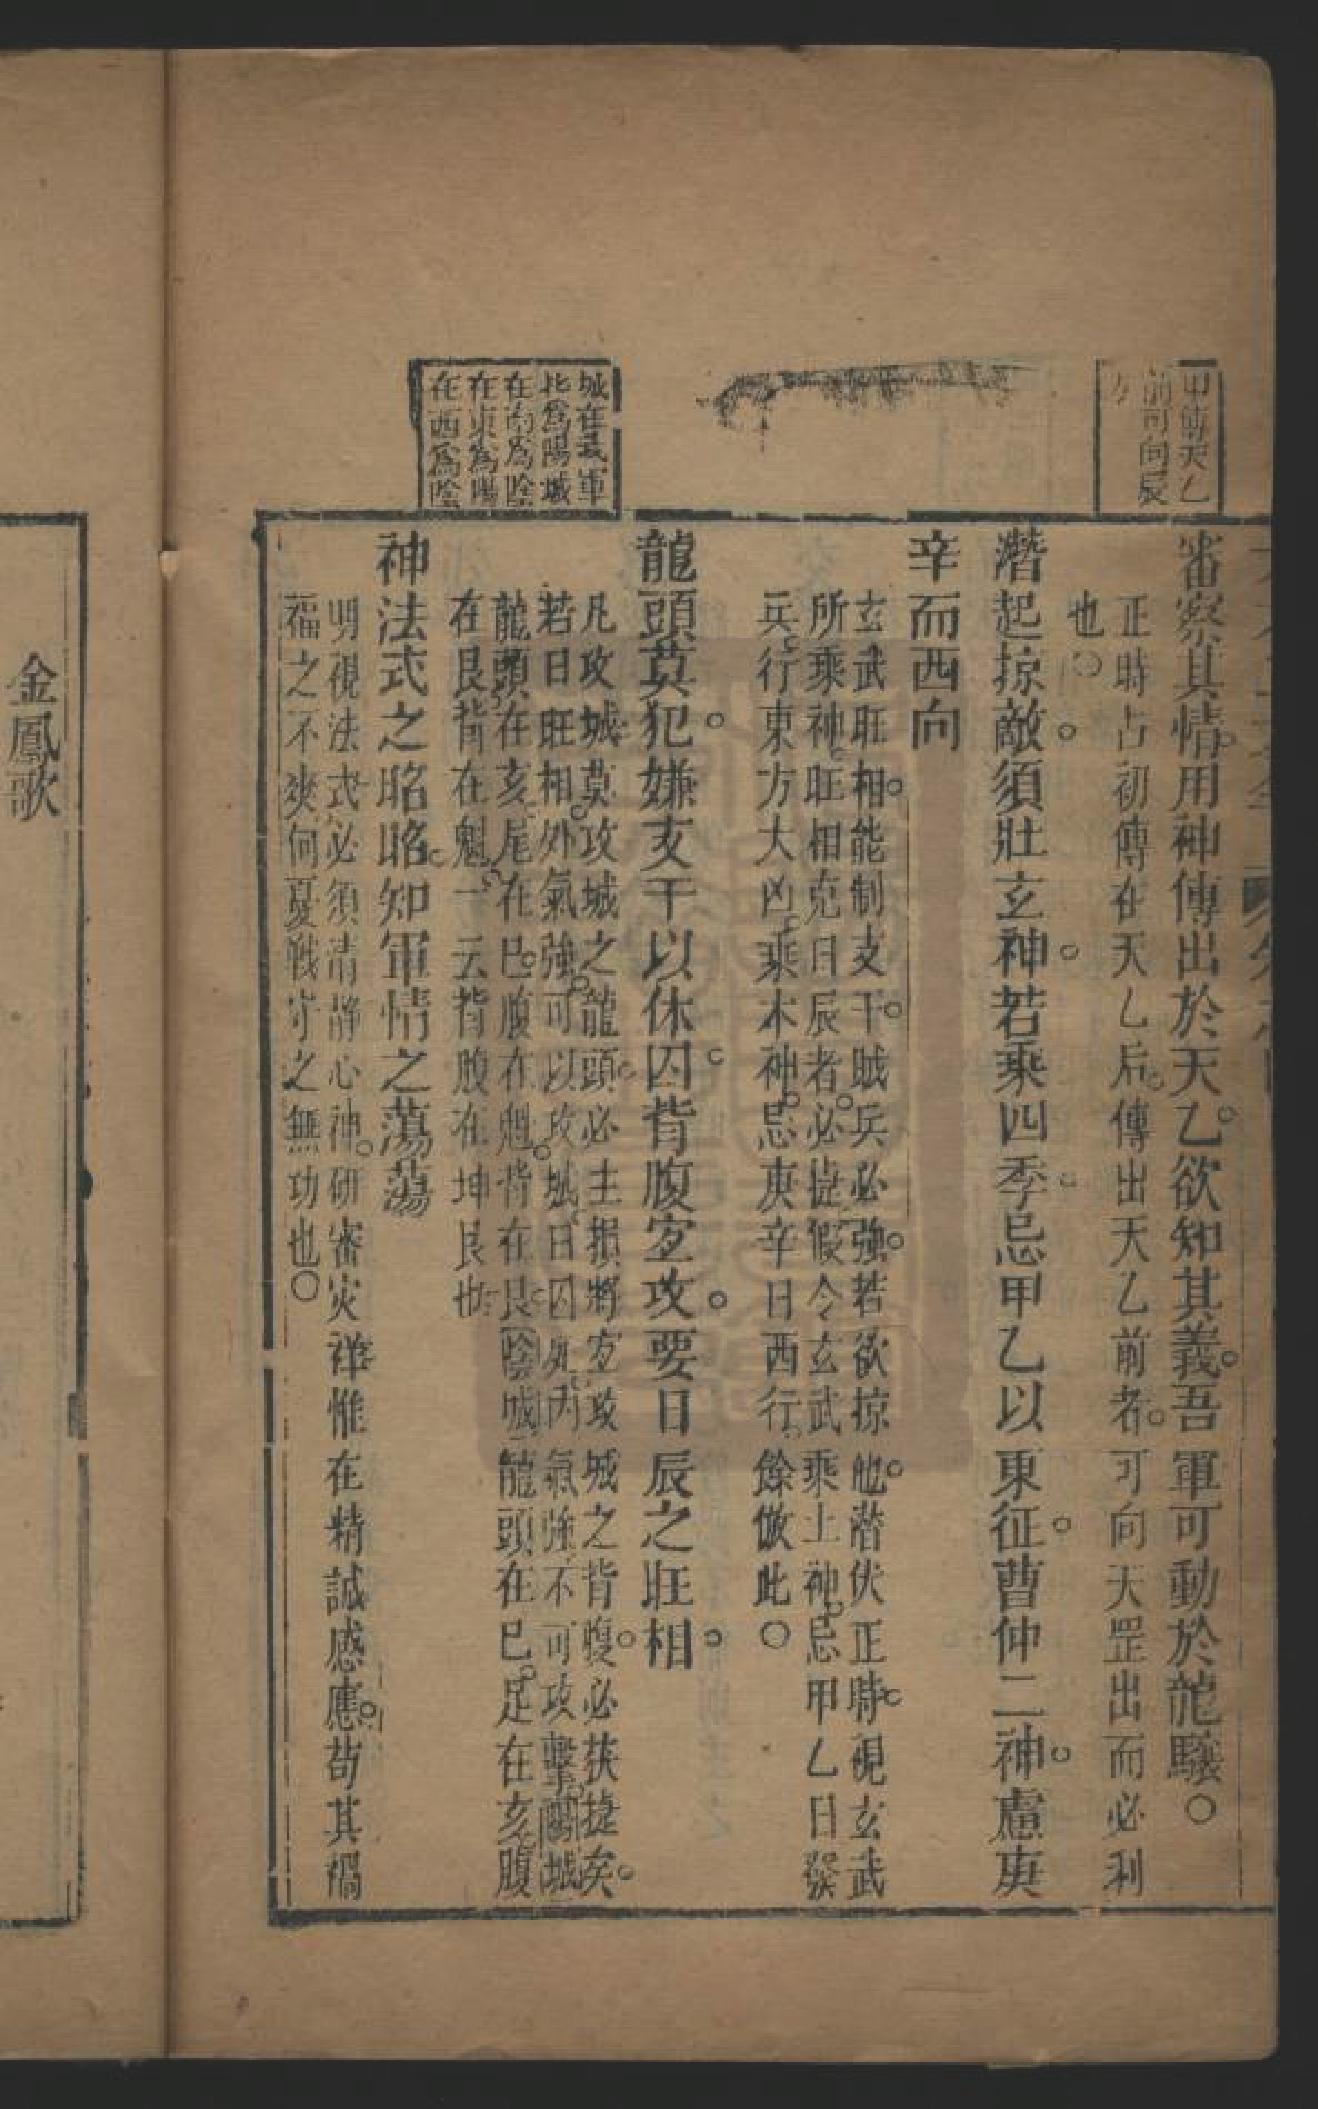 甲傳天乙
前可向辰
審察其情用神傳出於天乙欲知其義吾軍可動於龍驤〇
正時占初傳在天乙后傳出天乙前者可向天罡出而必利
也〇
潛起掠敵須壯玄神若乘四季忌甲乙以東征曹仲二神慮庚
辛而西向
玄武旺相能制支干賊兵必強若欲掠他潛伏正時視玄武
所乘神旺相克日辰者必捷假令玄武乘上神忌甲乙日發
兵行東方大凶乘木神忌庚辛日西行餘倣此〇
城在我軍
北為陽城
在南為陰
在東為陽
在西為陰
龍頭莫犯嫌支干以休囚背腹宐攻要日辰之旺相
凡攻城莫攻城之龍頭必主損將宐攻城之背腹必获捷矣
若日旺相外氣強可以攻城日囚死內氣強不可攻擊陽城
龍頭在亥尾在巳腹在魁背在艮陰城龍頭在巳足在亥腹
在艮背在魁一云背腹在坤艮也
神法式之昭昭知軍情之蕩蕩
明視法式必須清靜心神研審灾祥惟在精誠感應苟其禍
福之不爽何憂戰守之無功也〇
金鳳歌